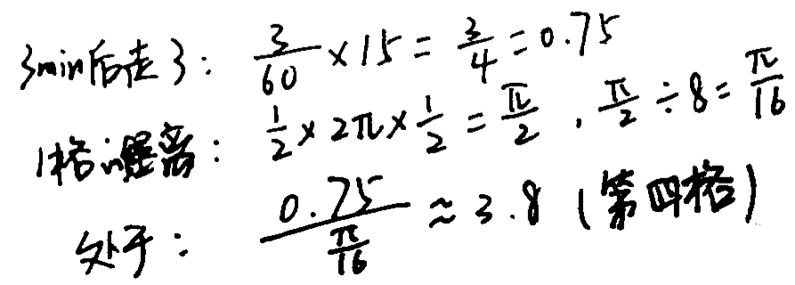 3min后走3: 3/60 × 15 = 3/4 = 0.75
1格距离: 1/2 × 2π × 1/2 = π/2 , π/2 ÷ 8 = π/16
处于: 0.75/(π/16) ≈ 3.8 (第四格)